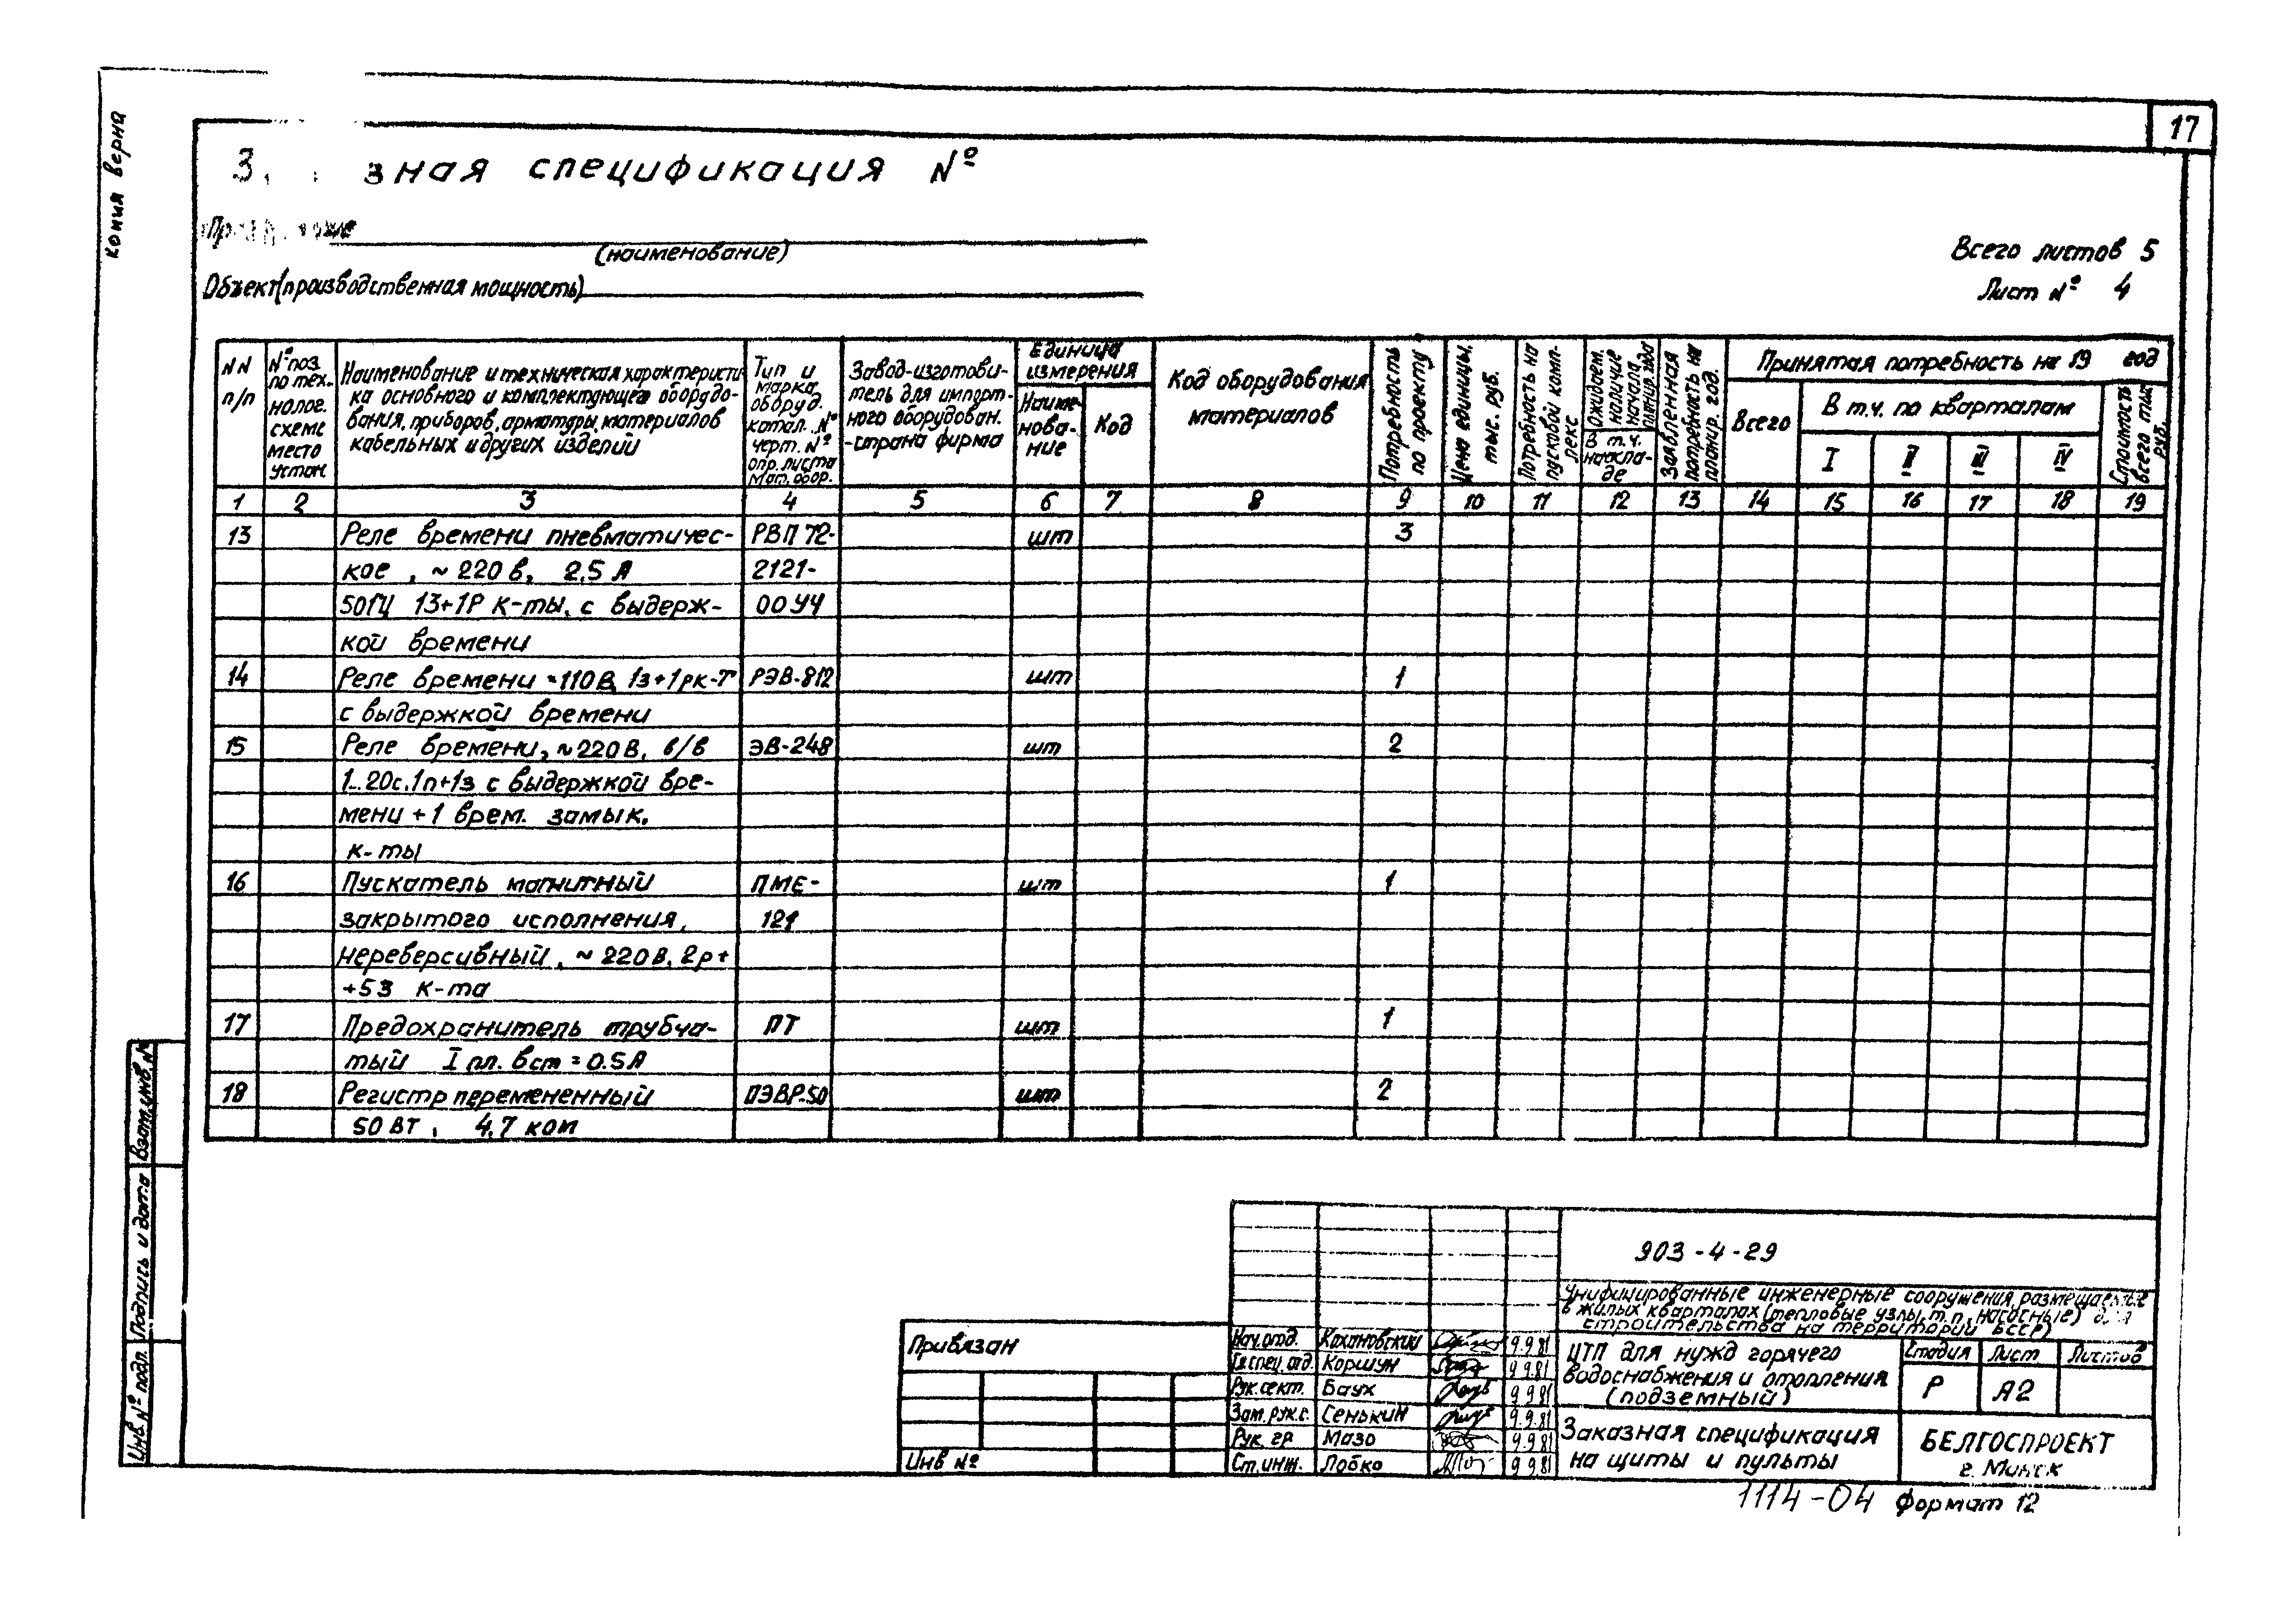 17
Копия верна
зная спецификация №
(наименование)
Объект(производственная мощность)
Всего листов 5
Лист № 4
NN п/п
№ поз по тех. нолог. схеме место устан.
Наименование и техническая характеристи
ка основного и комплектующего оборудо-
вания, приборов, арматуры, материалов
кабельных и других изделий
Тип и марка оборуд. катал. № черт. № опр. листа мат. обор.
Завод-изготови-
тель для импорт-
ного оборудован.
-страна фирма
Единица измерения
Наиме-
нова-
ние
Код
Код оборудования материалов
Потребность по проекту
Цена единицы, тыс. руб.
Потребность на пусковой комп-
лекс
Ожидаем. наличие начала планир. года
В т.ч. на скла-
де
Заявленная потребность на планир. год.
Принятая потребность на 19 год
Всего
В т.ч. по кварталам
I II III IV
Стоимость всего тыс. руб.
1 2 3 4 5 6 7 8 9 10 11 12 13 14 15 16 17 18 19
13 Реле времени пневматичес- РВП 72- шт 3
кое, ~ 220 в, 2.5 А 2121-
50Гц 1З+1Р к-ты, с выдерж- 00 У4
кой времени
14 Реле времени =110В, 1з+1рк-т РЭВ-812 шт 1
с выдержкой времени
15 Реле времени, ~220В, в/в ЭВ-248 шт 2
1...20с. 1п+1з с выдержкой вре-
мени + 1 врем. замык.
к-ты
16 Пускатель магнитный ПМЕ- шт 1
закрытого исполнения, 121
нереверсивный, ~ 220 в, 2р+
+5З к-та
17 Предохранитель трубча- ПТ шт 1
тый I пл. вст = 0.5А
18 Регистр перемененный ПЭВР-50 шт 2
50 Вт, 4,7 ком
Взам. инв. №
Подпись и дата
Инв № подл.
Привязан
Инв №
903-4-29
Унифицированные инженерные сооружения, размещаемые
в жилых кварталах (тепловые узлы, т.п., насосные) для
строительства на территории БССР)
Нач. отд. Кохановский 9.9.81
Гл. спец. отд. Коршун 9.9.81
Рук. сект. Баух 9.9.81
Зам. рук. с. Сенькин 9.9.81
Рук. гр Мазо 9.9.81
Ст. инж. Лобко 9.9.81
ЦТП для нужд горячего
водоснабжения и отопления
(подземный)
Стадия Лист Листов
Р А2
Заказная спецификация
на щиты и пульты
БЕЛГОСПРОЕКТ
г. Минск
1114-04 Формат 12